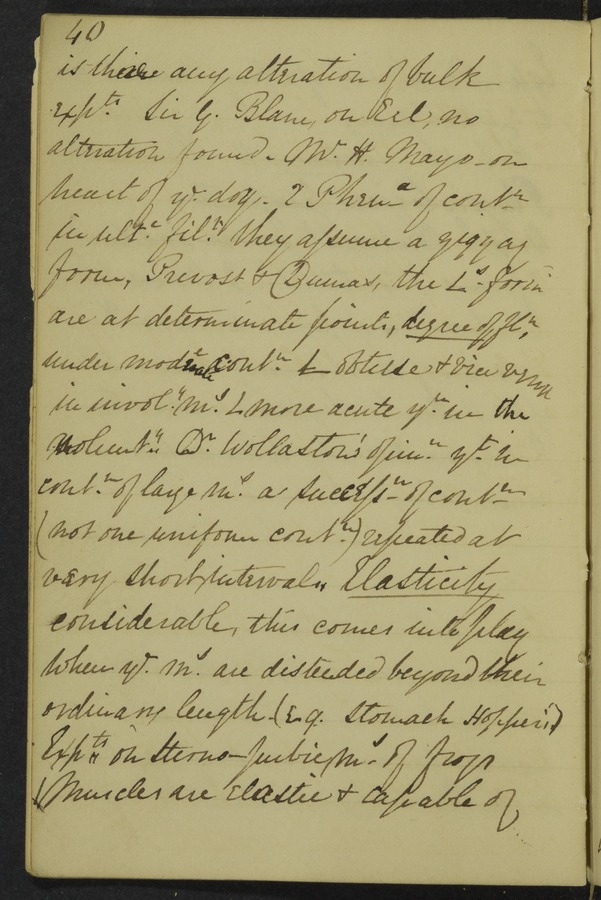 40
is there any alteration of bulk
Expts. Sir G. Blane, on Eel, no
alteration found. Mr. H. Mayo on
heart of ye. dog. 2 Phena of contn
in ultte filts they assume a zigzag
form, Prevost & Dumas, the Ls. form
are at determinate points, degree of
under moderate contn. L obtuse + vice versa
in invol:y ms. L more acute yn. in the
voluntry. Dr. Wollaston's opinn. yt. in
contn. of large ms. a successn of contns
(not one uniform contn.) repeated at
very short intervals. Elasticity
considerable, this comes into play
when ye. ms. are distended beyond their
ordinary length. (E.g. Stomach Hoppers)
Expts on Sterno-pubic ms. of frogs
Muscles are elastic & capable of